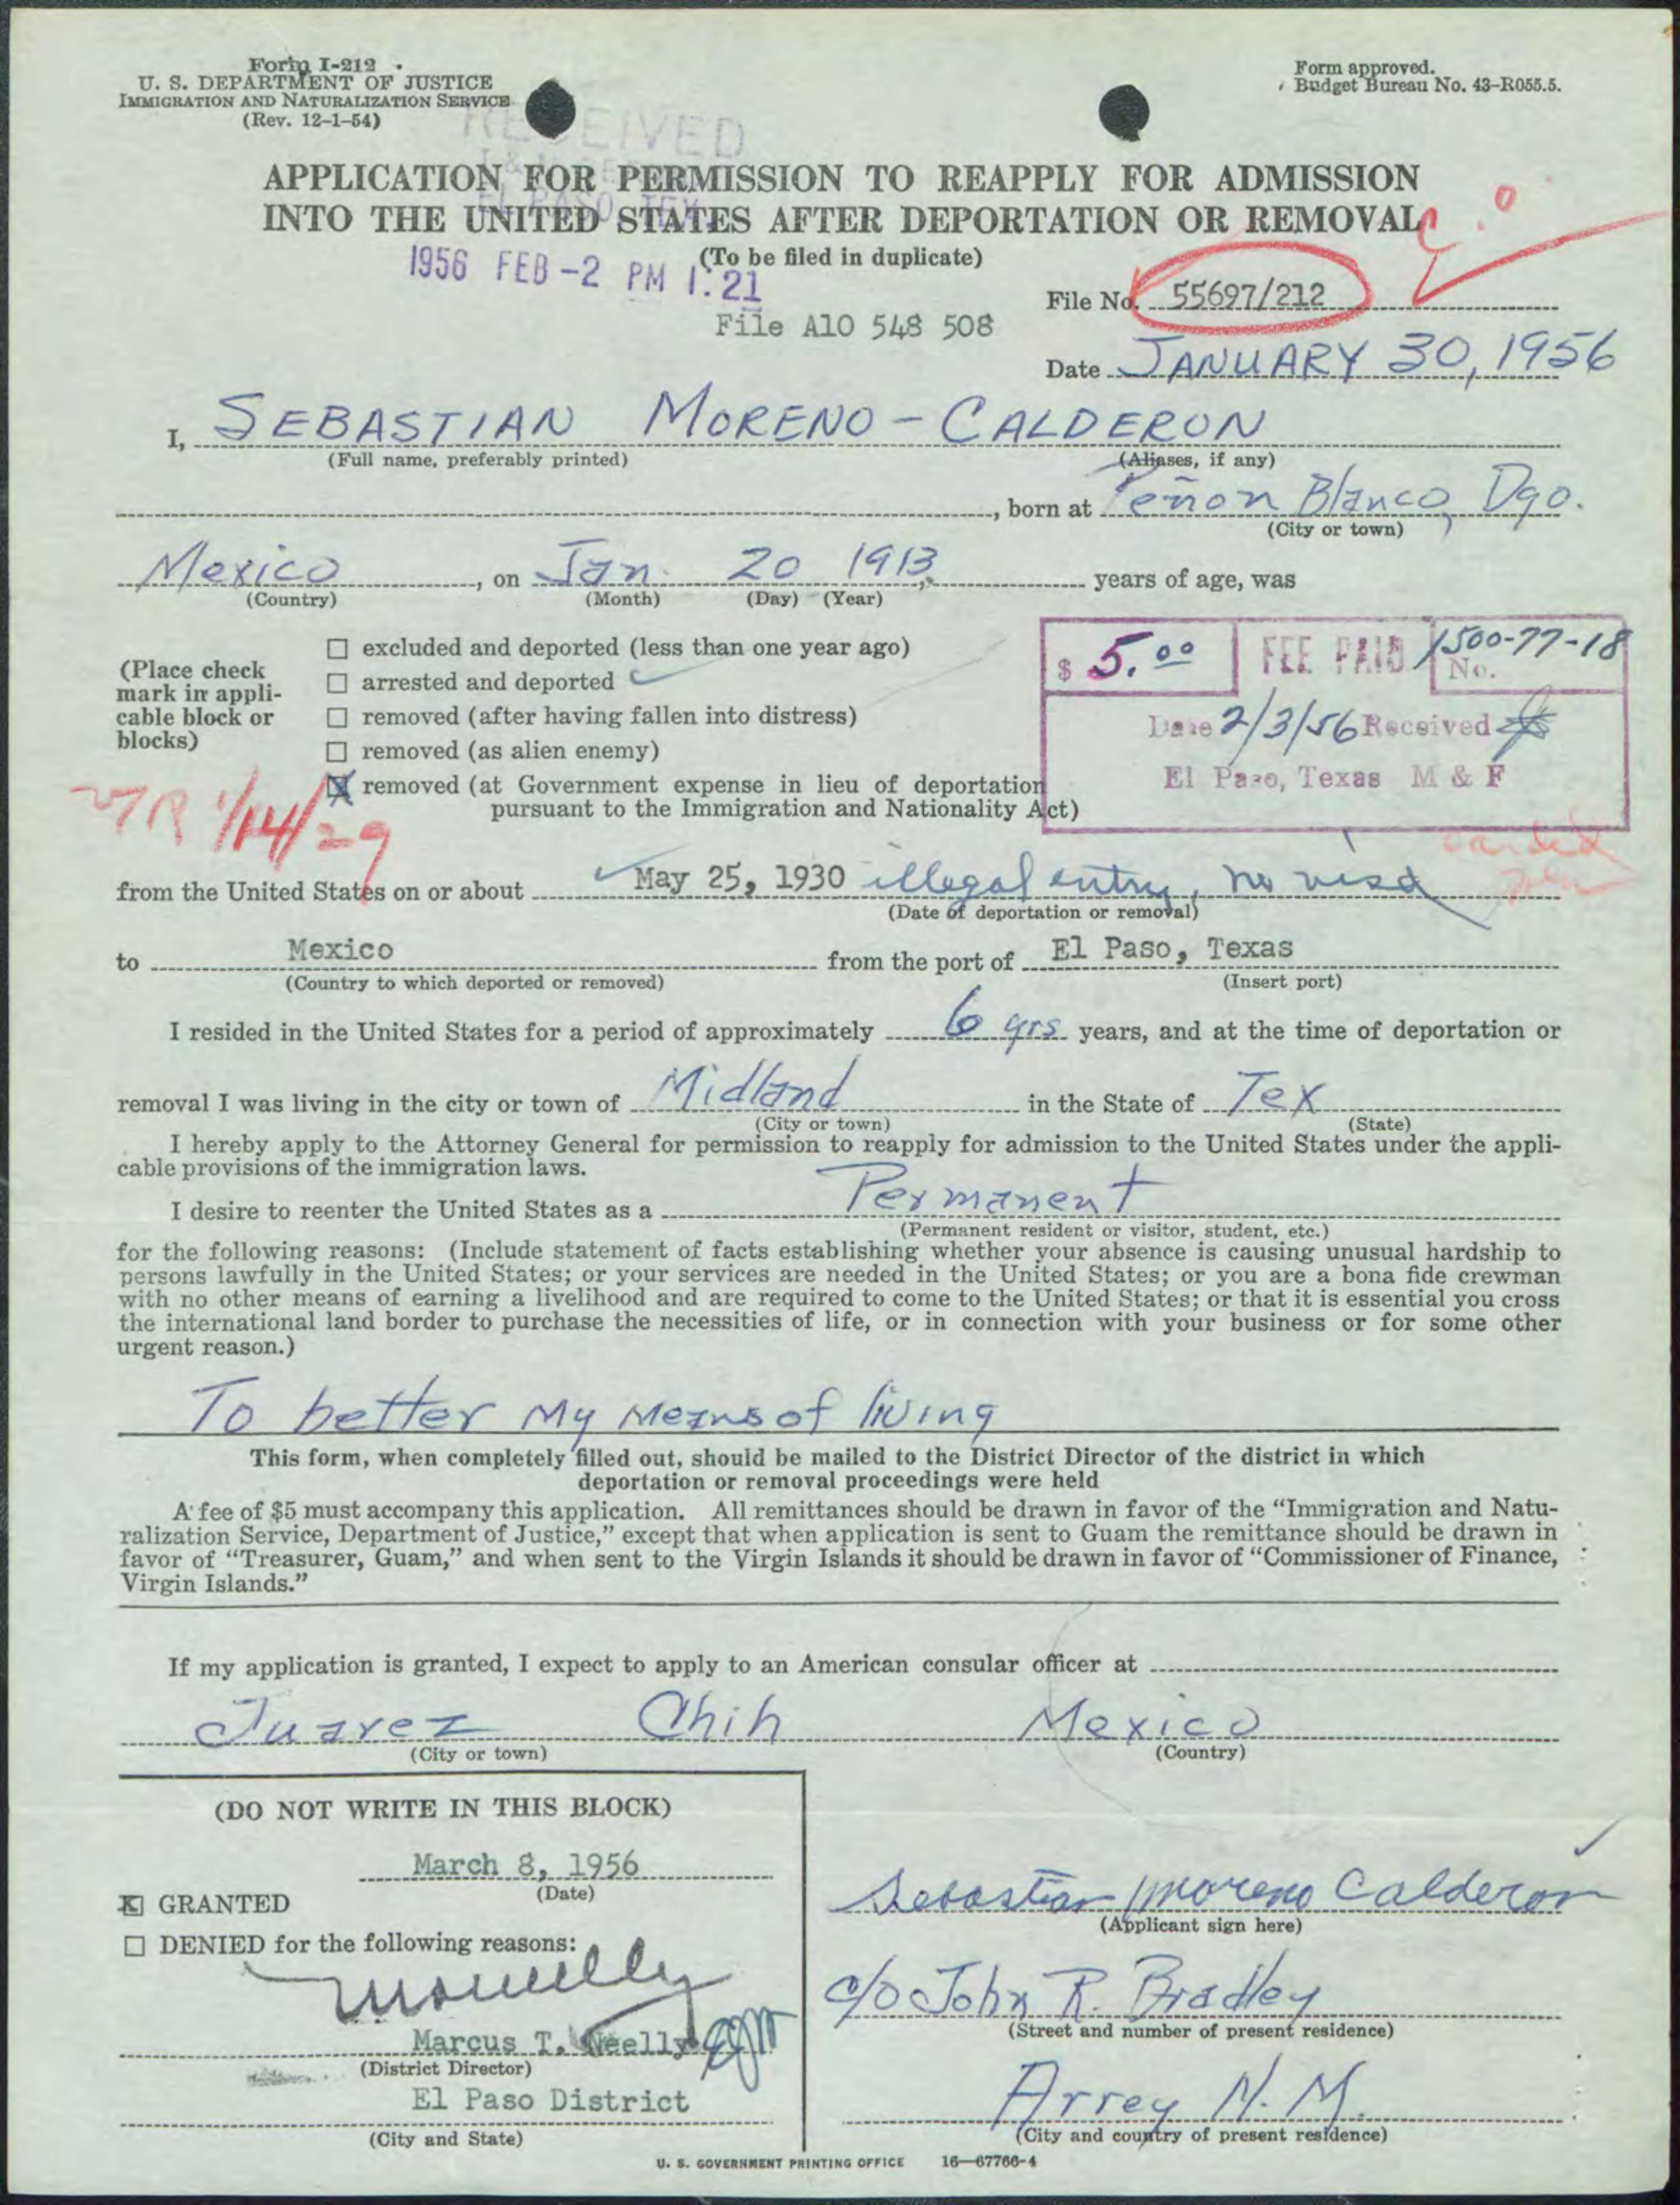 Form I-212
U. S. DEPARTMENT OF JUSTICE
IMMIGRATION AND NATURALIZATION SERVICE
(Rev. 12-1-54)
Form approved.
Budget Bureau No. 43-R055.5.
RECEIVED
EL PASO, TEX.
APPLICATION FOR PERMISSION TO REAPPLY FOR ADMISSION
INTO THE UNITED STATES AFTER DEPORTATION OR REMOVAL
(To be filed in duplicate)
1956 FEB -2 PM 1:21
File No. 55697/212
File A10 548 508
Date JANUARY 30, 1956
I, SEBASTIAN MORENO-CALDERON
(Full name, preferably printed) (Aliases, if any)
, born at Peñon Blanco, Dgo.
(City or town)
Mexico, on Jan. 20 1913, years of age, was
(Country) (Month) (Day) (Year)
(Place check mark in applicable block or blocks)
☐ excluded and deported (less than one year ago)
☐ arrested and deported
☐ removed (after having fallen into distress)
☐ removed (as alien enemy)
☒ removed (at Government expense in lieu of deportation
pursuant to the Immigration and Nationality Act)
$ 5.00 FEE PAID 1500-77-18
No.
Date 2/3/56 Received
El Paso, Texas M & F
VR 1/14/29
from the United States on or about May 25, 1930 illegal entry, no visa
(Date of deportation or removal)
to Mexico from the port of El Paso, Texas
(Country to which deported or removed) (Insert port)
I resided in the United States for a period of approximately 6 yrs years, and at the time of deportation or
removal I was living in the city or town of Midland in the State of Tex
(City or town) (State)
I hereby apply to the Attorney General for permission to reapply for admission to the United States under the appli-
cable provisions of the immigration laws.
I desire to reenter the United States as a Permanent
(Permanent resident or visitor, student, etc.)
for the following reasons: (Include statement of facts establishing whether your absence is causing unusual hardship to
persons lawfully in the United States; or your services are needed in the United States; or you are a bona fide crewman
with no other means of earning a livelihood and are required to come to the United States; or that it is essential you cross
the international land border to purchase the necessities of life, or in connection with your business or for some other
urgent reason.)
To better my means of living
This form, when completely filled out, should be mailed to the District Director of the district in which
deportation or removal proceedings were held
A fee of $5 must accompany this application. All remittances should be drawn in favor of the “Immigration and Natu-
ralization Service, Department of Justice,” except that when application is sent to Guam the remittance should be drawn in
favor of “Treasurer, Guam,” and when sent to the Virgin Islands it should be drawn in favor of “Commissioner of Finance,
Virgin Islands.”
If my application is granted, I expect to apply to an American consular officer at
Juarez Chih Mexico
(City or town) (Country)
(DO NOT WRITE IN THIS BLOCK)
March 8, 1956
(Date)
☒ GRANTED
☐ DENIED for the following reasons:
Marcus T. Neelly
(District Director)
El Paso District
(City and State)
Sebastian Moreno Calderon
(Applicant sign here)
c/o John R. Bradley
(Street and number of present residence)
Arrey N. M.
(City and country of present residence)
U. S. GOVERNMENT PRINTING OFFICE 16—67766-4